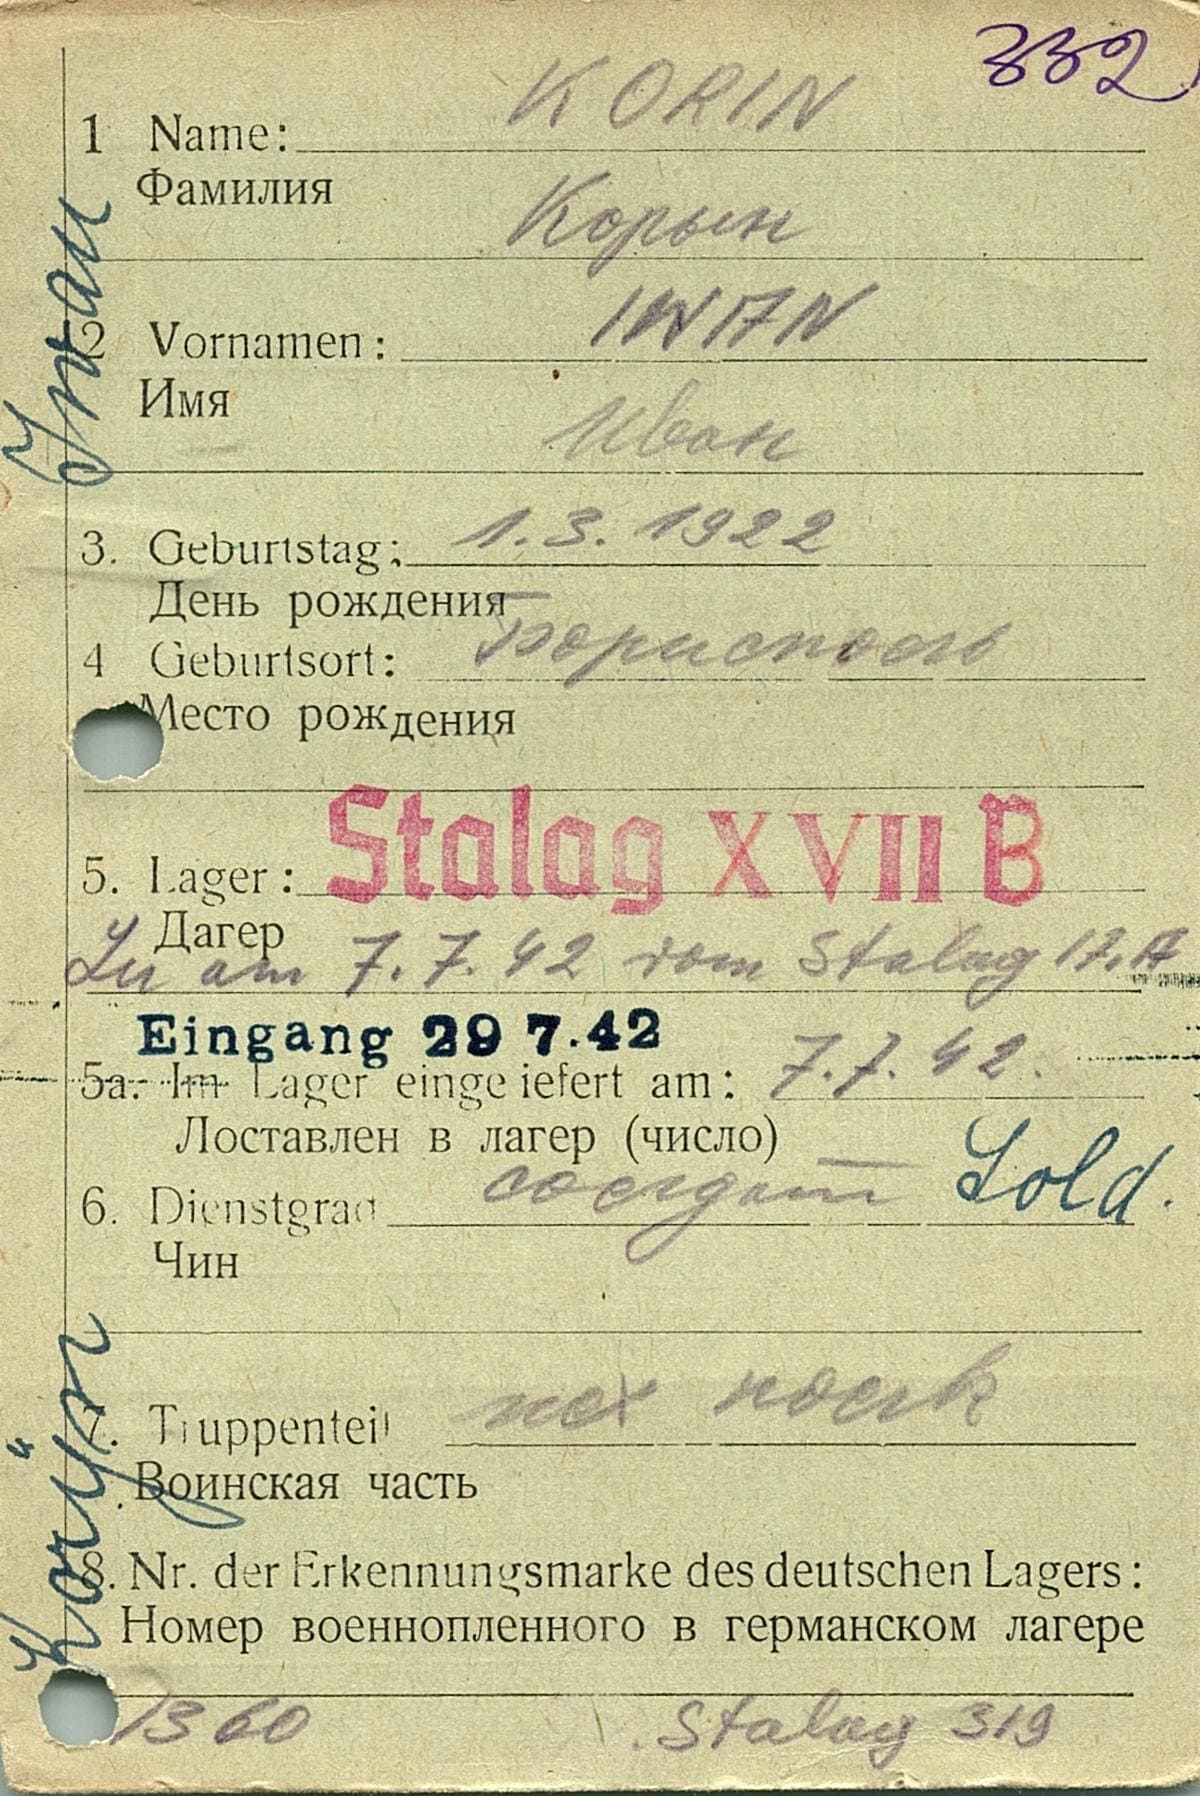 332
KORIN
1 Name:
Фамилия
Корын
IWAN
2 Vornamen:
Имя
Иван
3. Geburtstag: 1.3.1922
День рождения
4 Geburtsort: Борисполь
Место рождения
Stalag XVII B
5. Lager:
Дагер
am 7.7.42 vom Stalag 17.A
Eingang 29 7.42
5a. Im Lager eingeliefert am: 7.7.42.
Лоставлен в лагер (число)
6. Dienstgrad солдат Sold.
Чин
7. Truppenteil пех полк
Воинская часть
8. Nr. der Erkennungsmarke des deutschen Lagers:
Номер военнопленного в германском лагере
1360 Stalag 319
Korÿn
Iwan